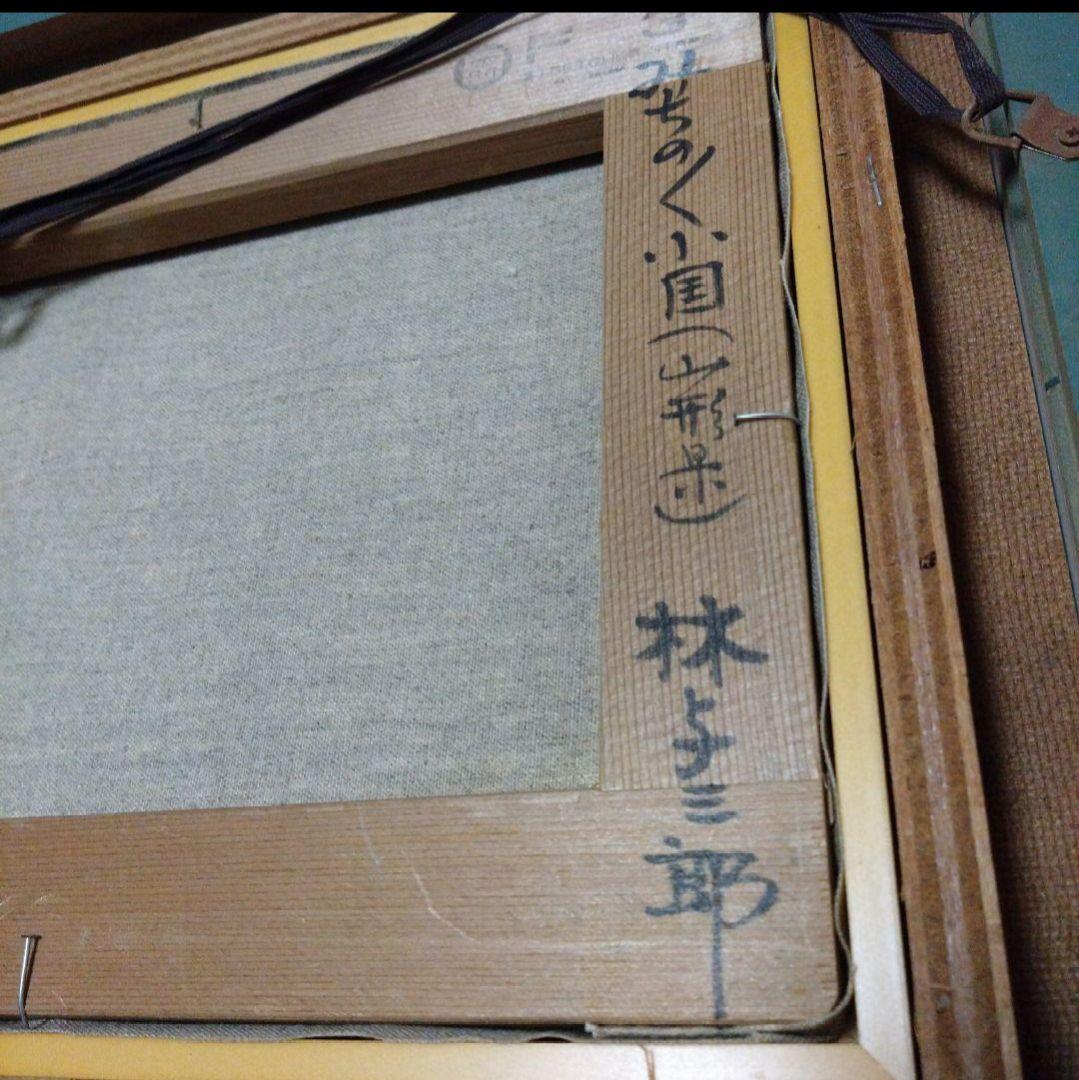 みちのく小国(山形県)
林与三郎